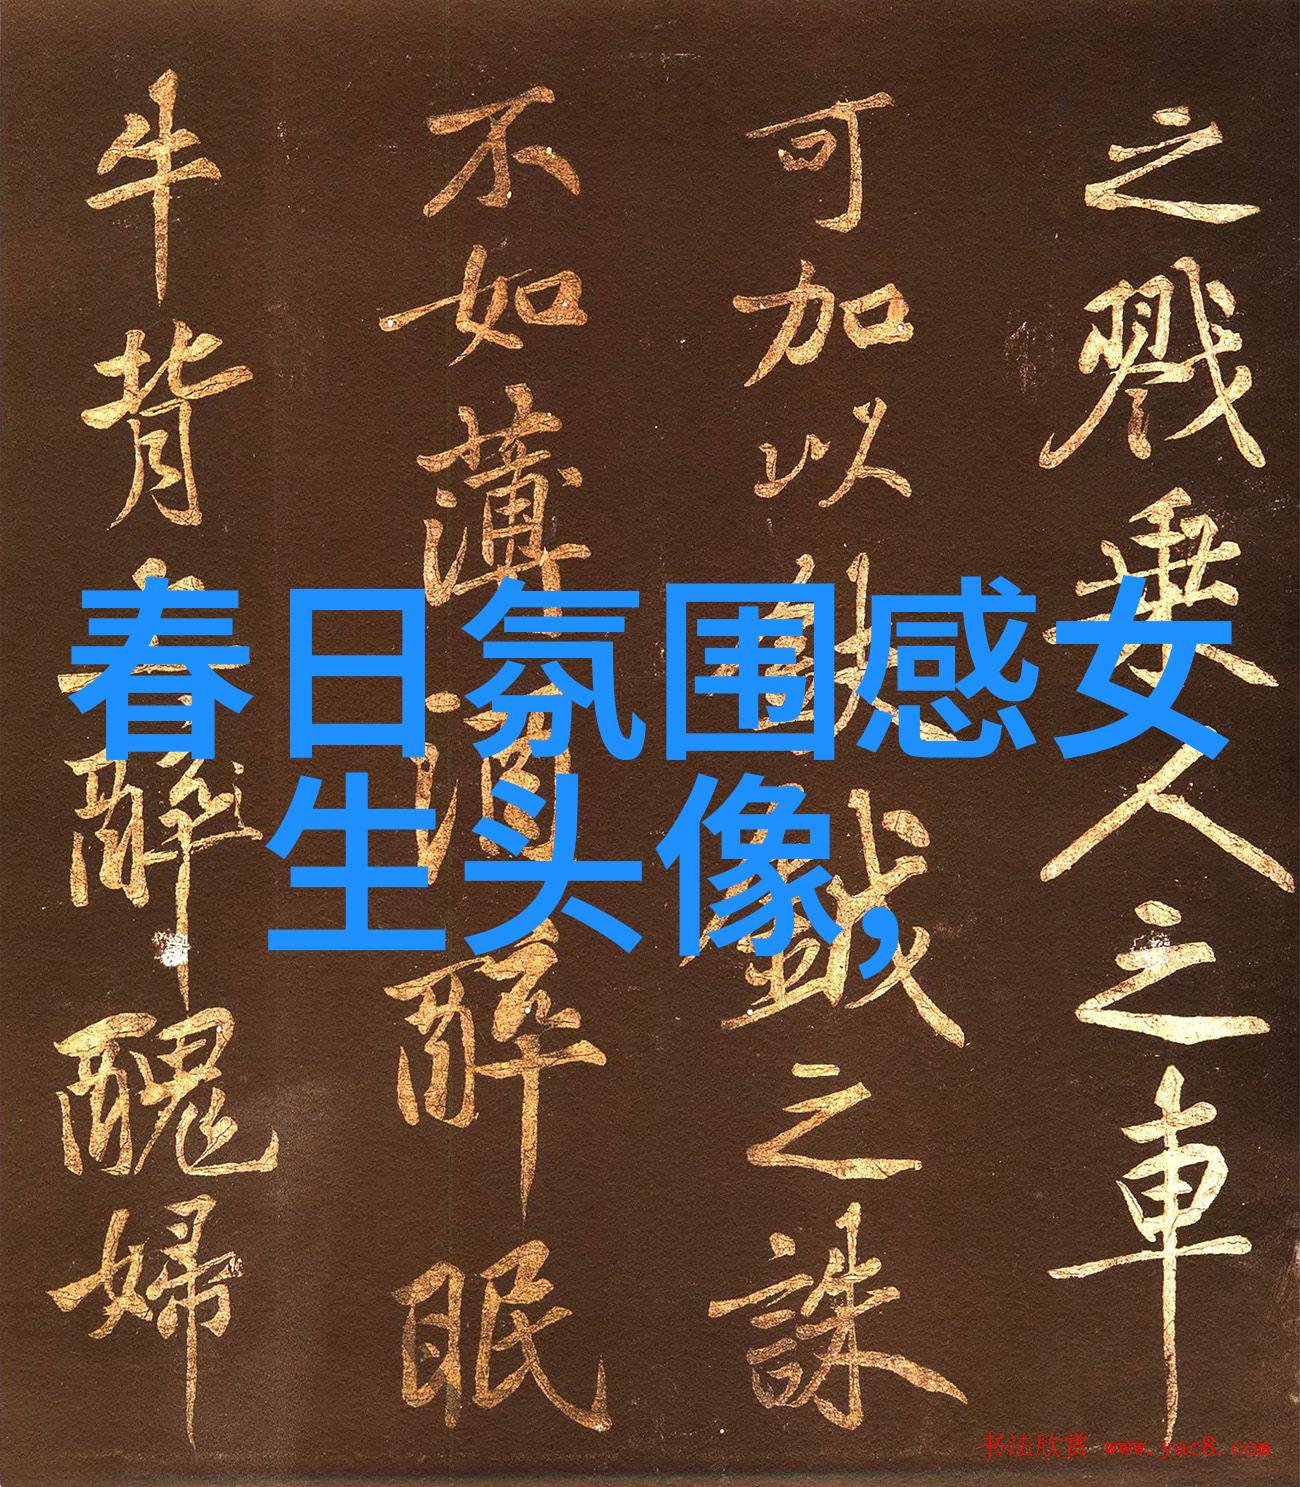 之戮乘人之車
可加以鈇鉞之誅
不如薄酒醉眠
牛背上醉醜婦
春日氛围感女
生头像,
书法欣赏 www.yac8.com